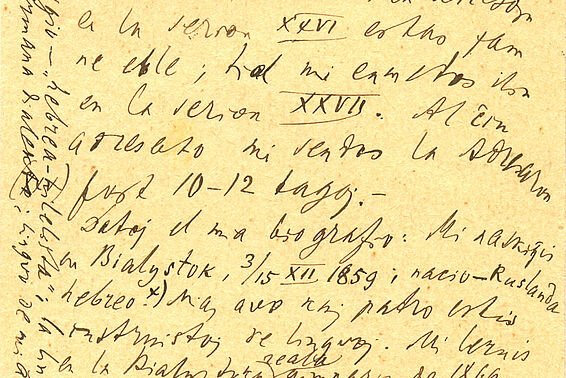 en la serion XXVI estas jam
ne eble; tial mi enmetos ilin
en la serion XXVII. Al ĉiu
adresato mi sendos la Adresaron
post 10-12 tagoj.-
Datoj el mia biografio: Mi naskiĝis
en Bialystok, 3/15 XII 1859; nacio-Ruslanda
hebreo x) Miaj avo kaj patro estis
instruistoj de lingvoj. Mi lernis
en la reala
gimnazio de 1869
"hebrea-
dialekto; lingvo de mi